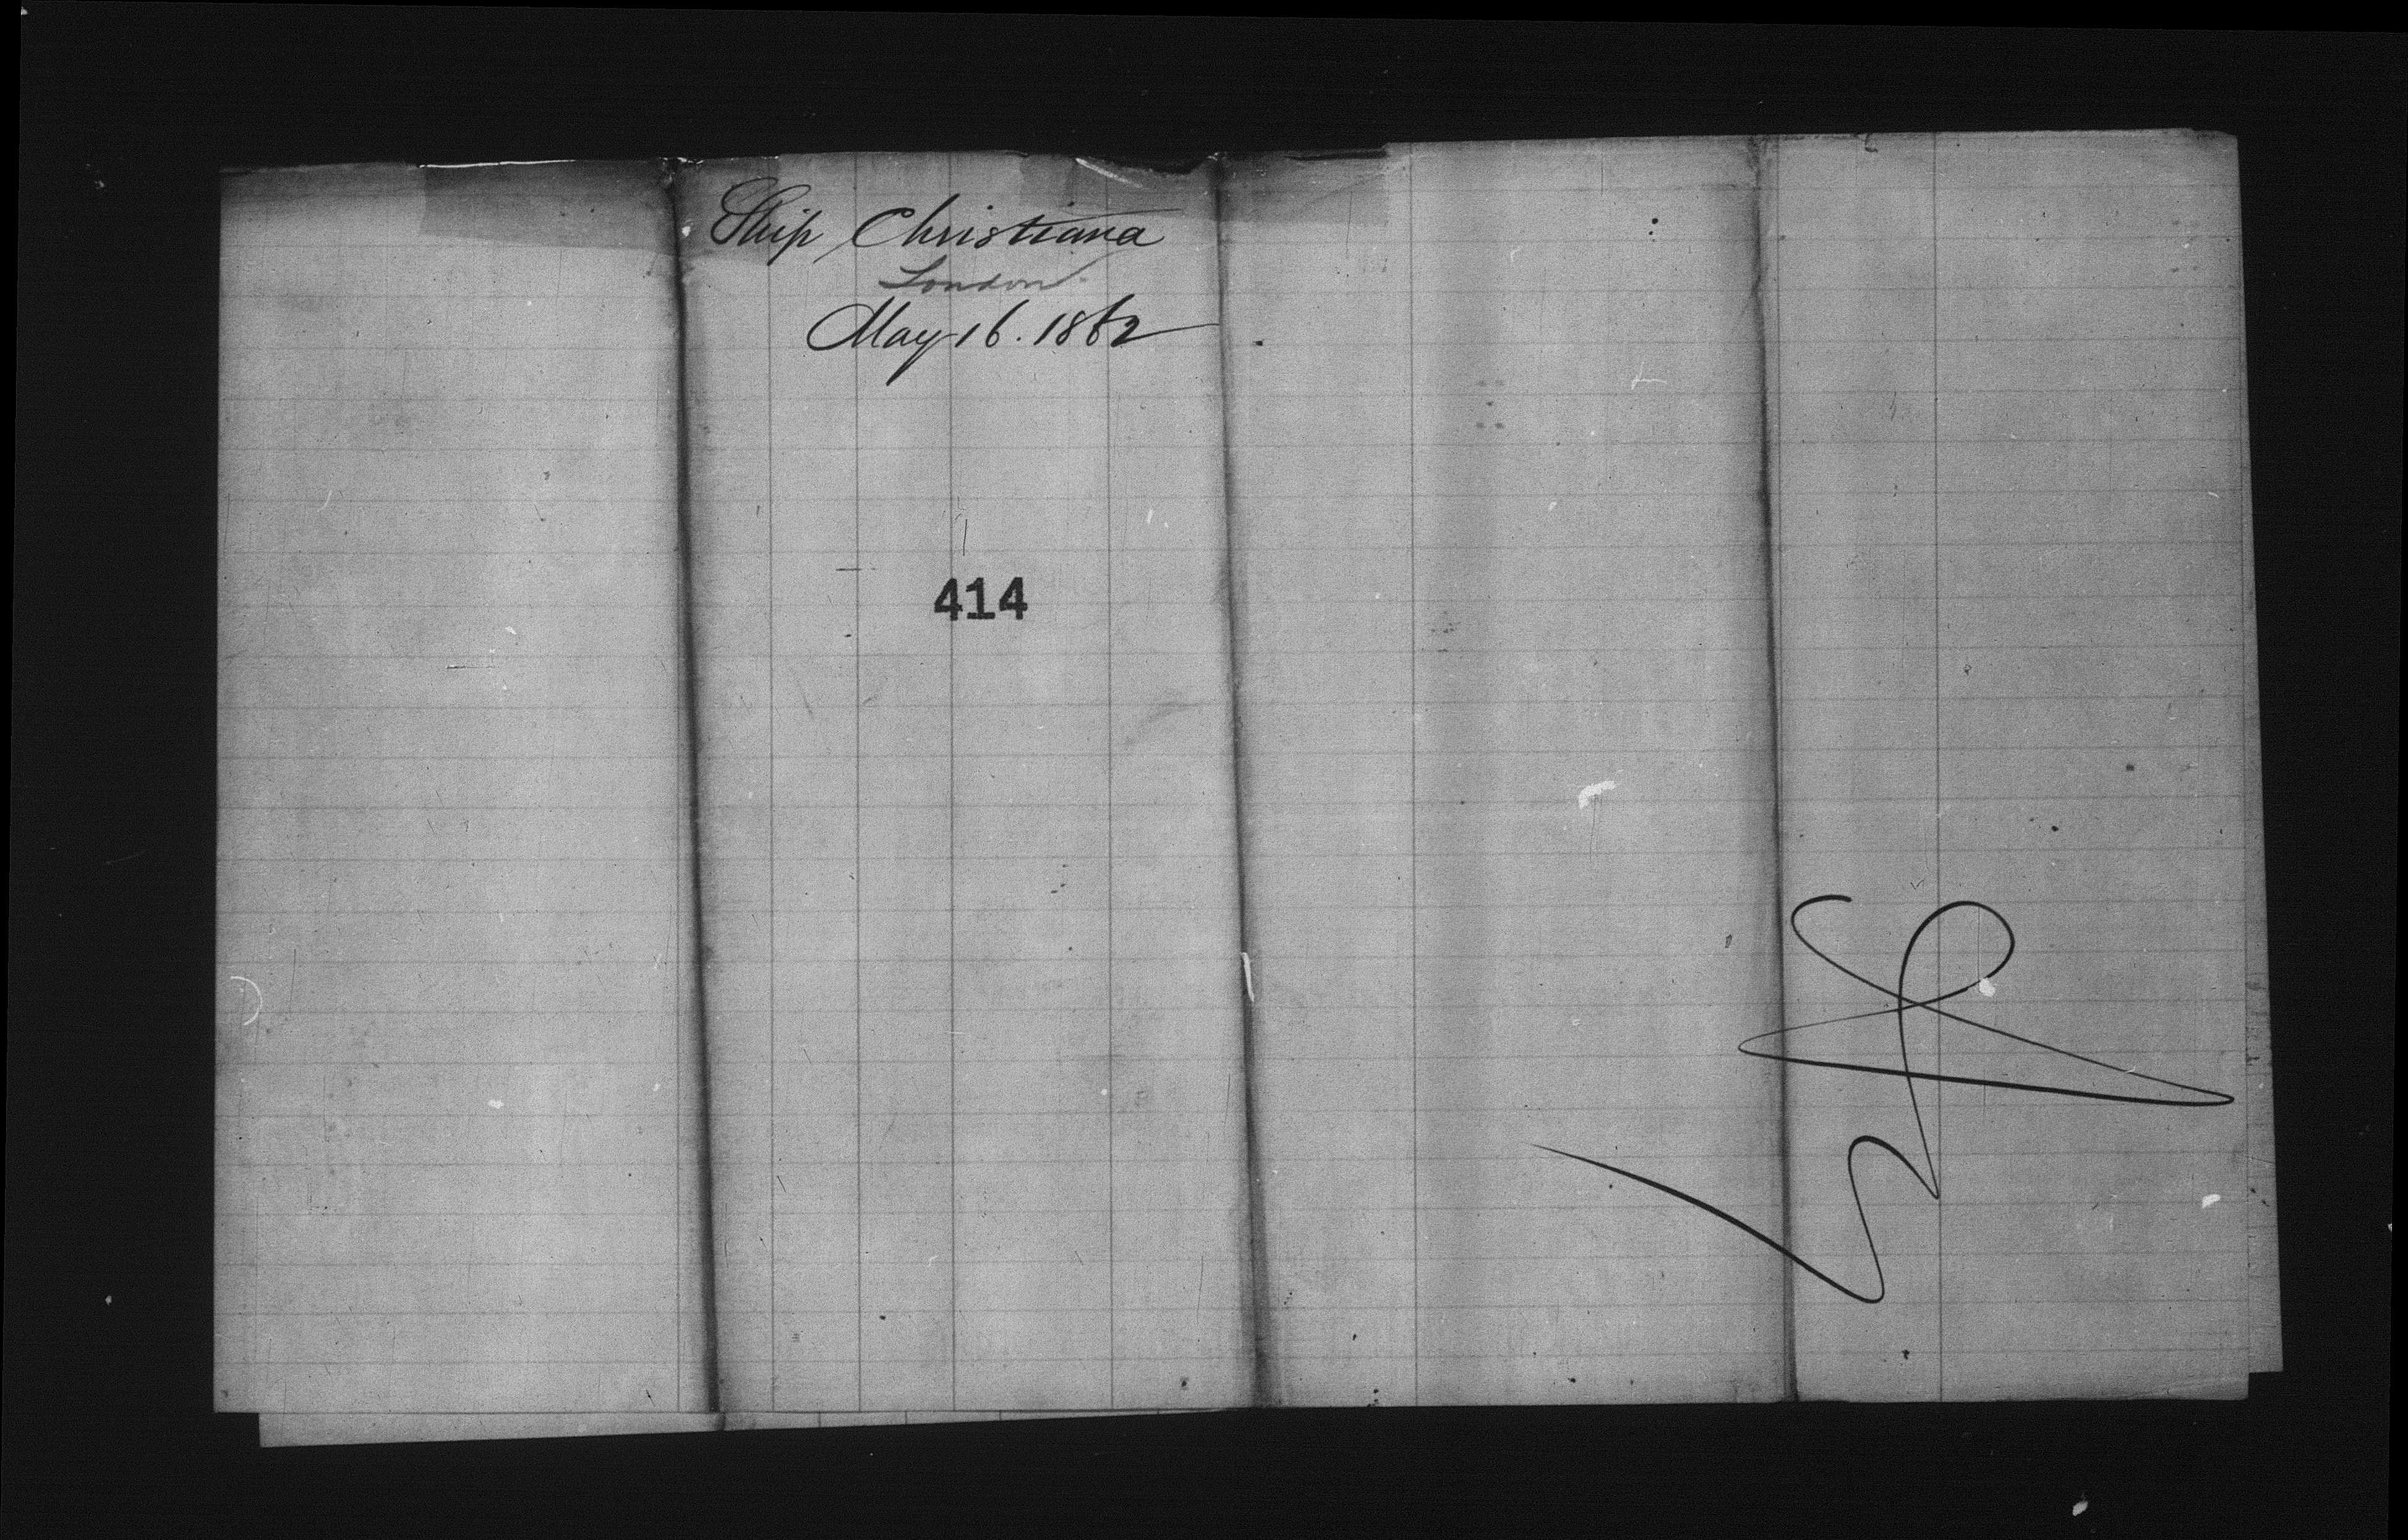 Ship Christiana
London
May 16. 1862
414